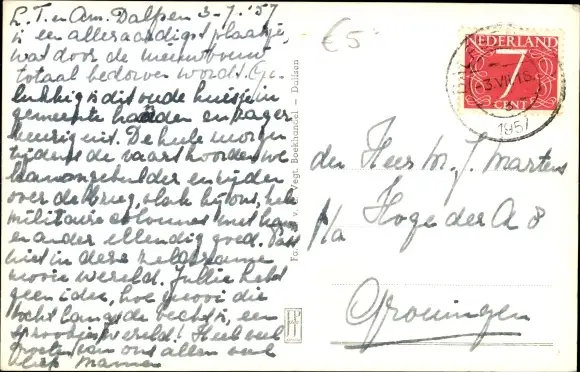 L. T. en Am. Dalfsen 3-7-'57
is een alleraardigst plaatsje,
wat door de nieuwbouw
totaal bedorven wordt. Ge-
lukkig is dit oude huisje in
gemeente handen en
uit. De hele morgen
tijdens de vaart hoorden we
kanongebulder en rijden
over de brug, vlak bij ons, hele
militaire colonnes met kanon
en ander ellendig goed. Past
niet in deze zeldzame
mooie wereld. Jullie hebt
geen idee, hoe mooi die
tocht langs de Vecht is, een
sprookjeswereld! Heel veel
groeten van ons allen ook
€5
NEDERLAND
7
CENT
3.VII.15
1957
den Heer M. J. Martens
p/a Hoge der A 8
Groningen
Boekhandel — Dalfsen